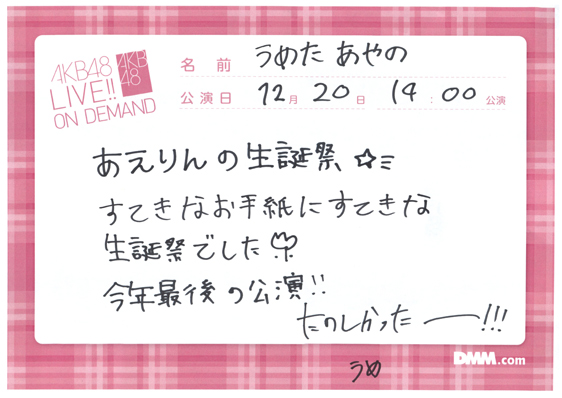 AKB48
LIVE!!
ON DEMAND
AKB
48
名前 うめた あやの
公演日 12月 20日 19:00 公演
あえりんの生誕祭☆ミ
すてきなお手紙にすてきな
生誕祭でした
今年最後の公演!!
たのしかったー!!!
DMM.com
うめ